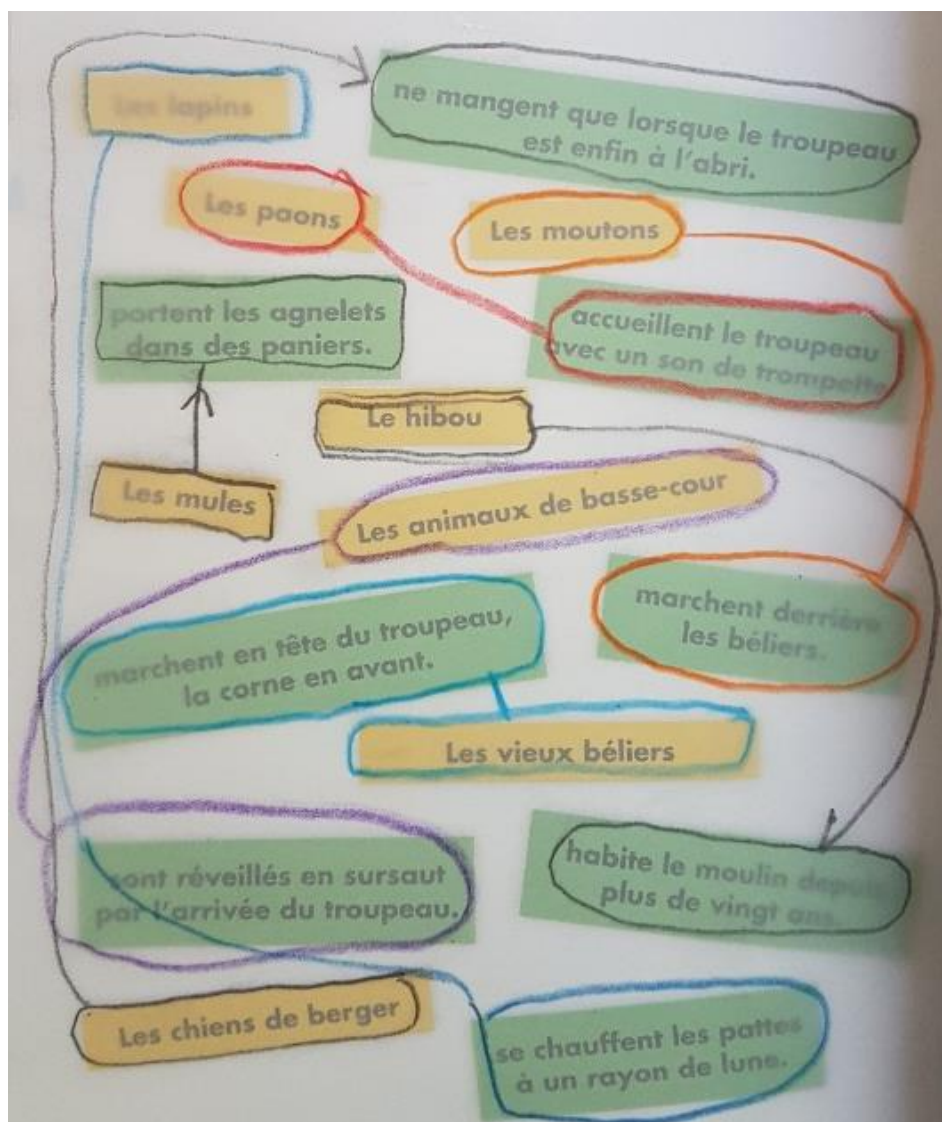 Les lapins
ne mangent que lorsque le troupeau
est enfin à l'abri.
Les paons
Les moutons
portent les agnelets
dans des paniers.
accueillent le troupeau
avec un son de trompette
Le hibou
Les mules
Les animaux de basse-cour
marchent derrière
les béliers.
marchent en tête du troupeau,
la corne en avant.
Les vieux béliers
sont réveillés en sursaut
par l'arrivée du troupeau.
habite le moulin depuis
plus de vingt ans.
Les chiens de berger
se chauffent les pattes
à un rayon de lune.